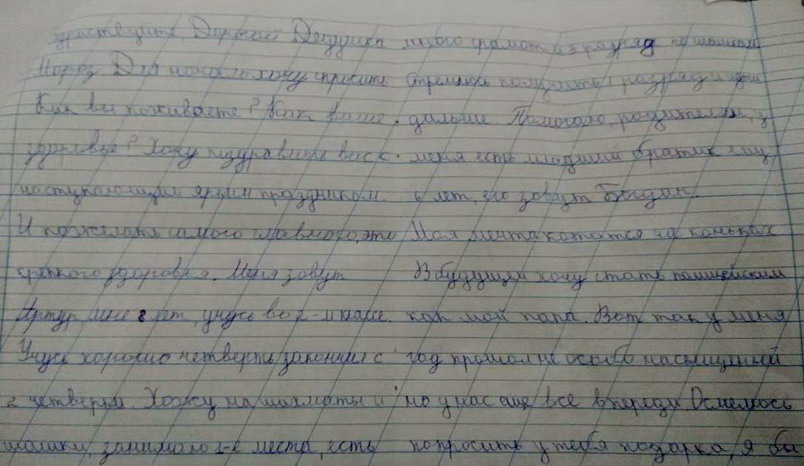 здраствуйте Дорогой Дедушка
Мороз Для начало хочу спросить
Как вы поживаете? Как ваше
здоровье? Хочу поздравить вас с
наступающим ярким праздником.
И пожелать самого главного, это
крепкого здоровья. Меня зовут
Артур, мне 8 лет, учусь во 2-м классе.
Учусь хорошо четверть закончил с
2 четверкам. Хожу на шахматы и
шашки, занимаю 1-е места, есть
много грамот и 3 разряд по шашкам
Стремлюсь получить 1 разряд и
дальше Помогаю родителям, у
меня есть младший братик ему
6 лет, его зовут Богдан.
Моя мечта кататся на коньках
В будущем хочу стать полицейским
как мой папа. Вот так у меня
год прошол не особо насыщеный
но у нас еще все впереди Осмелюсь
попросить у тебя подарка, я бы